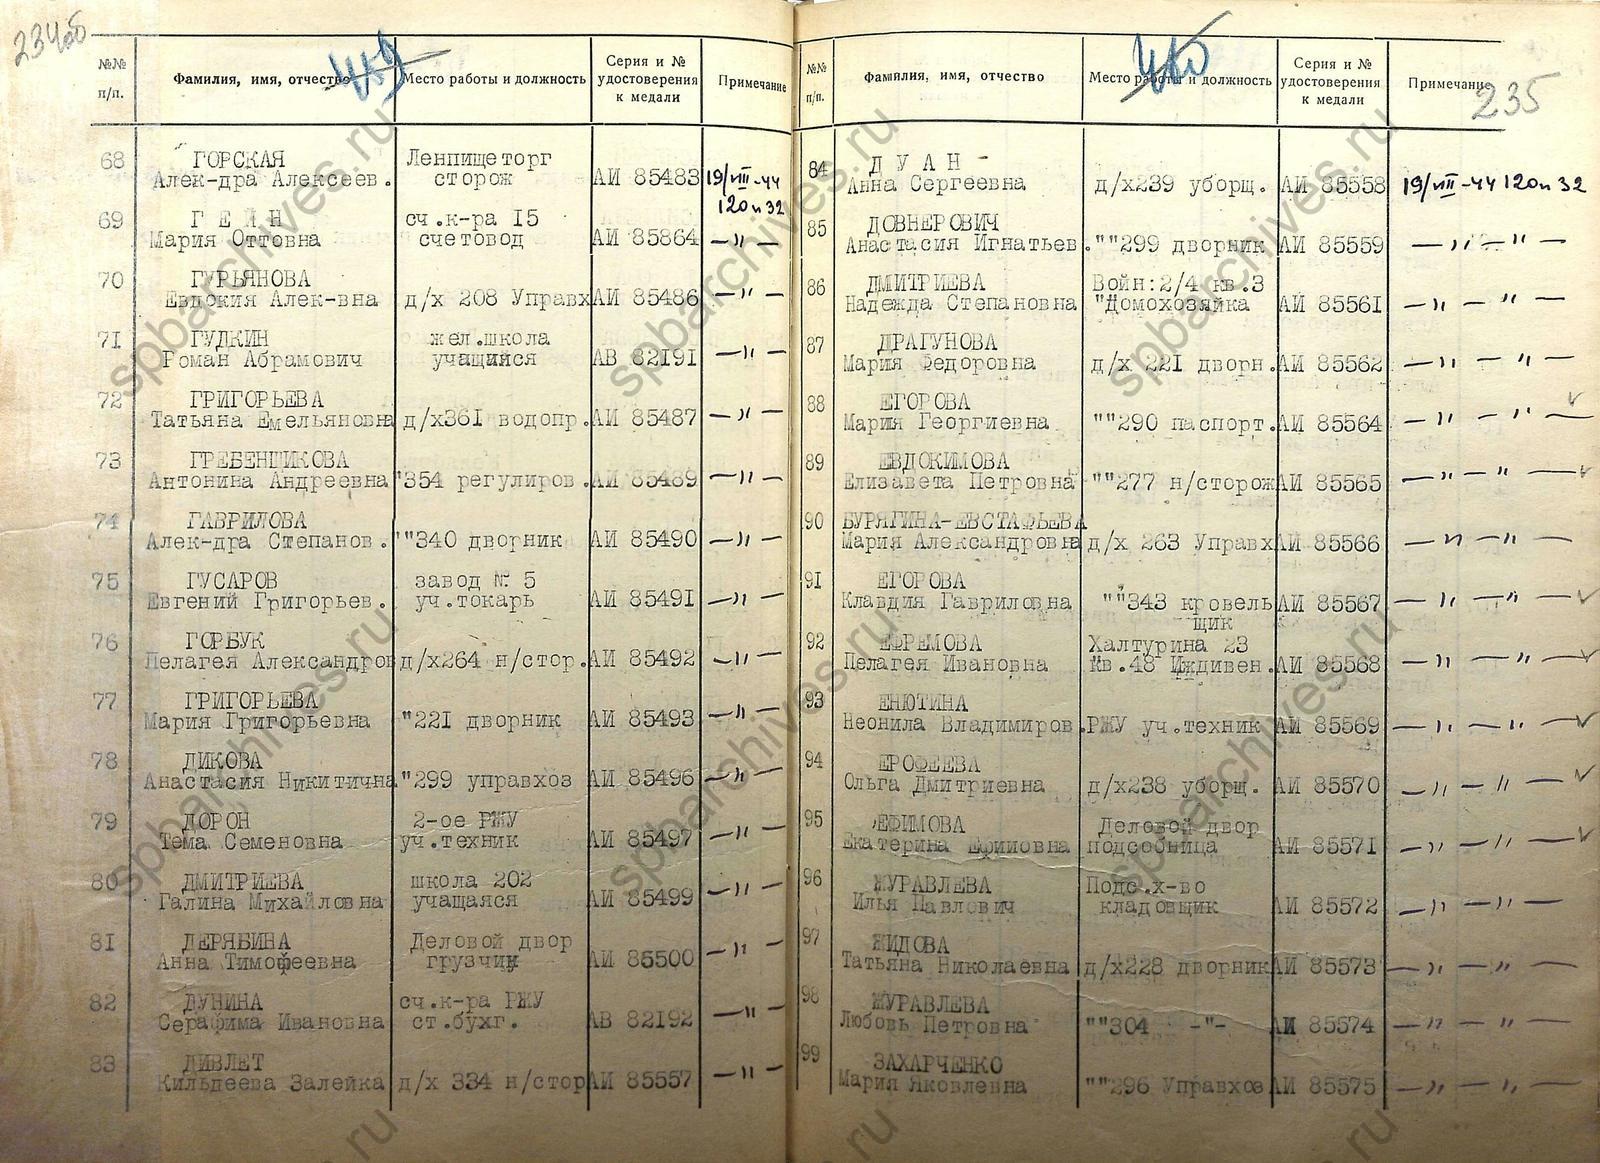 234об
459
№№
п/п.
Фамилия, имя, отчество
Место работы и должность
Серия и №
удостоверения
к медали
Примечание
68
ГОРСКАЯ
Ленпищеторг
Алек-дра Алексеев.
сторож
АИ 85483
19/VIII-44
120 и 32
69
ГЕЙН
сч.к-ра 15
Мария Оттовна
счетовод
АИ 85864
—"—
70
ГУРЬЯНОВА
Евдокия Алек-вна
д/х 208 Управх
АИ 85486
—"—
71
ГУДКИН
жел.школа
Роман Абрамович
учащийся
АВ 82191
—"—
72
ГРИГОРЬЕВА
Татьяна Емельяновна
д/х361 водопр.
АИ 85487
—"—
73
ГРЕБЕНЩИКОВА
Антонина Андреевна
"354 регулиров.
АИ 85489
—"—
74
ГАВРИЛОВА
Алек-дра Степанов.
""340 дворник
АИ 85490
—"—
75
ГУСАРОВ
завод № 5
Евгений Григорьев.
уч.токарь
АИ 85491
—"—
76
ГОРБУК
Пелагея Александров
д/х264 н/стор.
АИ 85492
—"—
77
ГРИГОРЬЕВА
Мария Григорьевна
"221 дворник
АИ 85493
—"—
78
ДИКОВА
Анастасия Никитична
"299 управхоз
АИ 85496
—"—
79
ДОРОН
2-ое РЖУ
Тема Семеновна
уч.техник
АИ 85497
—"—
80
ДМИТРИЕВА
школа 202
Галина Михайловна
учащаяся
АИ 85499
—"—
81
ДЕРЯБИНА
Деловой двор
Анна Тимофеевна
грузчик
АИ 85500
—"—
82
ДУНИНА
сч.к-ра РЖУ
Серафима Ивановна
ст.бухг.
АВ 82192
—"—
83
ДИВЛЕТ
Кильдеева Залейка
д/х 334 н/стор
АИ 85557
—"—
460
235
№№
п/п.
Фамилия, имя, отчество
Место работы и должность
Серия и №
удостоверения
к медали
Примечание
84
ДУАН
Анна Сергеевна
д/х239 уборщ.
АИ 85558
19/VIII-44 120 и 32
85
ДОВНЕРОВИЧ
Анастасия Игнатьев.
""299 дворник
АИ 85559
—"—"—
86
ДМИТРИЕВА
Войн:2/4 кв.3
Надежда Степановна
"Домохозяйка
АИ 85561
—"—"—
87
ДРАГУНОВА
Мария Федоровна
д/х 221 дворн.
АИ 85562
—"—"—
88
ЕГОРОВА
Мария Георгиевна
""290 паспорт.
АИ 85564
—"—"—
89
ЕВДОКИМОВА
Елизавета Петровна
""277 н/сторож
АИ 85565
—"—"—
90
БУРЯГИНА-ЕВСТАФЬЕВА
Мария Александровна
д/х 263 Управх
АИ 85566
—"—"—
91
ЕГОРОВА
Клавдия Гавриловна
""343 кровель
щик
АИ 85567
—"—"—
92
ЕФРЕМОВА
Халтурина 23
Пелагея Ивановна
Кв.48 Иждивен.
АИ 85568
—"—"—
93
ЕНЮТИНА
Неонила Владимиров.
РЖУ уч.техник
АИ 85569
—"—"—
94
ЕРОФЕЕВА
Ольга Дмитриевна
д/х238 уборщ.
АИ 85570
—"—"—
95
ЕФИМОВА
Деловой двор
Екатерина
подсобница
АИ 85571
—"—"—
96
ЖУРАВЛЕВА
Подс.х-во
Илья Павлович
кладовщик
АИ 85572
—"—"—
97
ЖИДОВА
Татьяна Николаевна
д/х228 дворник
АИ 85573
—"—"—
98
ЖУРАВЛЕВА
Любовь Петровна
""304 -"-
АИ 85574
—"—"—
99
ЗАХАРЧЕНКО
Мария Яковлевна
""296 Управхоз
АИ 85575
—"—"—
spbarchives.ru
spbarchives.ru
spbarchives.ru
spbarchives.ru
spbarchives.ru
spbarchives.ru
ru
ru
ru